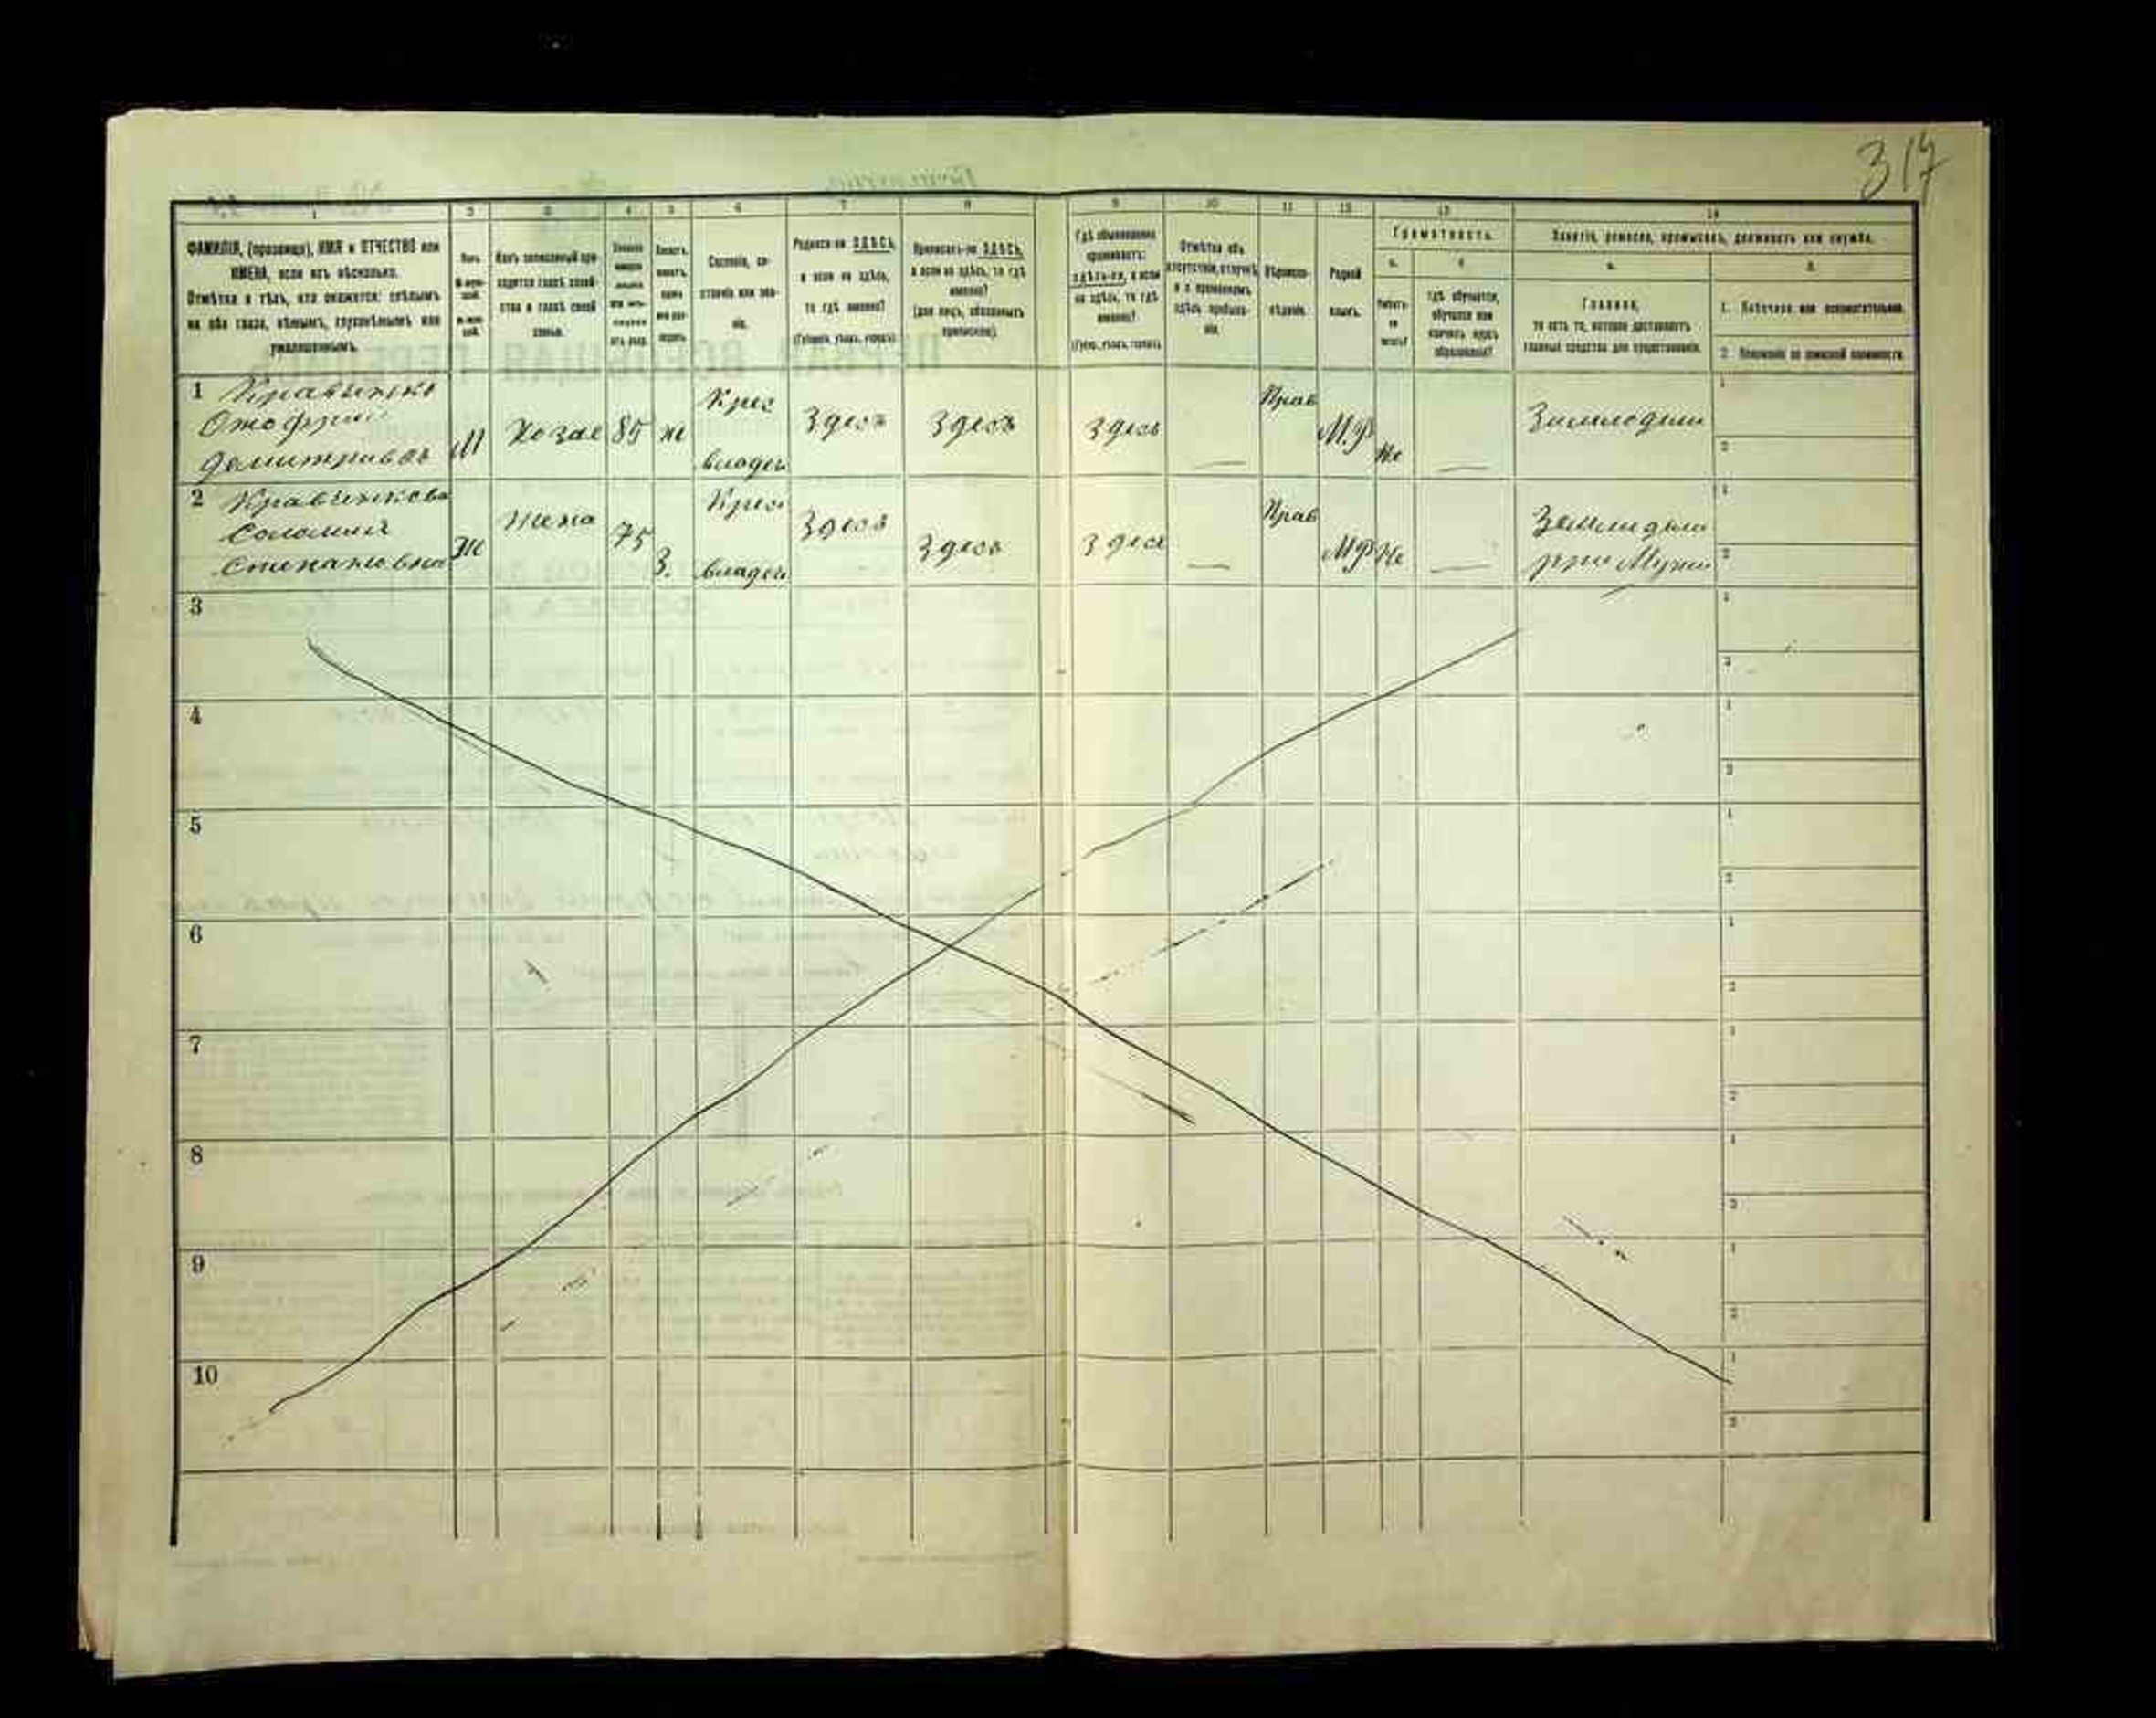 317
1 2 3 4 5 6 7 8 9 10 11 12 13 14
ФАМИЛІЯ, (прозвище), ИМЯ и ОТЧЕСТВО или
ИМЕНА, если ихъ нѣсколько.
Отмѣтка о тѣхъ, кто окажется: слѣпымъ
на оба глаза, нѣмымъ, глухонѣмымъ или
умалишеннымъ.
Полъ.
Какъ записанный при-
ходится главѣ хозяй-
ства и главѣ своей
семьи.
Сословіе, со-
стояніе или зва-
ніе.
Родился-ли ЗДѢСЬ,
а если не здѣсь,
то гдѣ именно?
(Губернія, уѣздъ, городъ).
Приписанъ-ли ЗДѢСЬ,
а если не здѣсь, то гдѣ
именно?
(для лицъ, обязанныхъ
припискою).
Гдѣ обыкновенно
проживаетъ:
здѣсь-ли, а если
не здѣсь, то гдѣ
именно?
(Губер., уѣздъ, городъ).
Отмѣтка объ
отсутствіи, отлучкѣ
и о временномъ
здѣсь пребыва-
ніи.
Вѣроиспо-
вѣданіе.
Родной
языкъ.
Грамотность.
а.
Умѣетъ-
ли
читать?
б.
гдѣ обучается,
обучался или
кончилъ курсъ
образованія?
Занятіе, ремесло, промыселъ, должность или служба.
а.
Главное,
то есть то, которое доставляетъ
главныя средства для существованія.
б.
1. Побочное или вспомогательное.
2. Положеніе по воинской повинности.
1 Кравченко
Онофрий
Демитриевъ
М
Хозяе
85
ж
Крес
владен
Здесь
Здесь
Здесь
Прав
М.Р
Не
Зимледели
1
2
2 Кравченкова
Соломия
Степановна
Ж
Жена
75
З.
Крес
владен
Здесь
Здесь
Здесь
Прав
МР
Не
Землидели
при Мужи
1
2
3
1
2
4
1
2
5
1
2
6
1
2
7
1
2
8
1
2
9
1
2
10
1
2